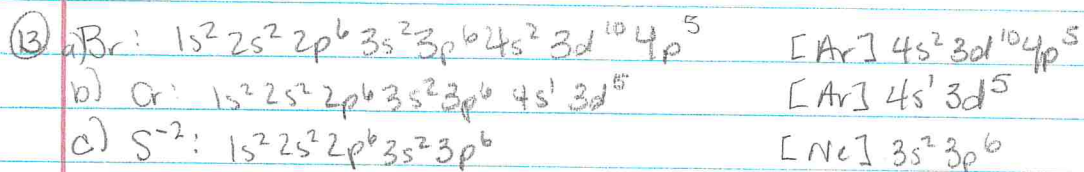 13 a) Br: 1s² 2s² 2p⁶ 3s² 3p⁶ 4s² 3d¹⁰ 4p⁵ [Ar] 4s² 3d¹⁰ 4p⁵
b) Cr: 1s² 2s² 2p⁶ 3s² 3p⁶ 4s¹ 3d⁵ [Ar] 4s¹ 3d⁵
c) S⁻²: 1s² 2s² 2p⁶ 3s² 3p⁶ [Ne] 3s² 3p⁶